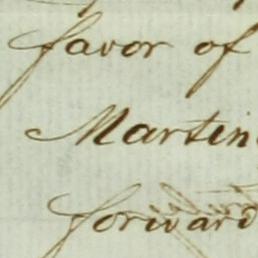 favor of
Martin
forward